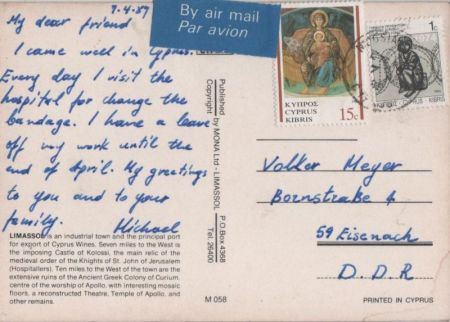 7.4.87
My dear friend
I came well in Cyprus.
Every day I visit the
hospital for change the
bandage. I have a leave
off my work until the
end of April. My greetings
to you and to your
family. Michael
LIMASSOL is an industrial town and the principal port
for export of Cyprus Wines. Seven miles to the West is
the imposing Castle of Kolossi, the main relic of the
medieval order of the Knights of St. John of Jerusalem
(Hospitallers). Ten miles to the West of the town are the
extensive ruins of the Ancient Greek Colony of Curium,
centre of the worship of Apollo, with interesting mosaic
floors, a reconstructed Theatre, Temple of Apollo, and
other remains.
Published by MONA Ltd - LIMASSOL P.O.Box 4368
Copyright Tel. 26400
M 058
By air mail
Par avion
ΚΥΠΡΟΣ
CYPRUS
KIBRIS
15c
1c
Volker Meyer
Bornstraße 4
59 Eisenach
D.D.R
PRINTED IN CYPRUS